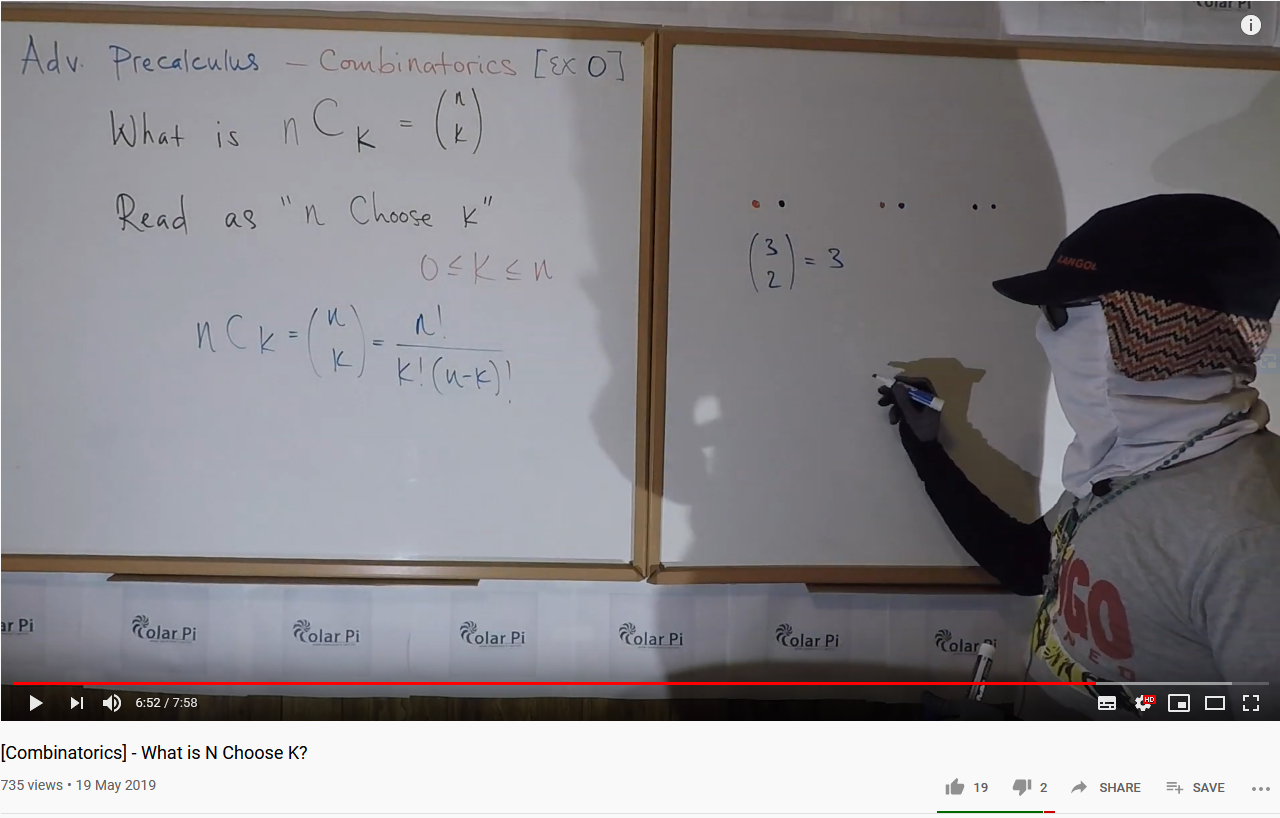 olar Pi
Adv. Precalculus – Combinatorics [Ex 0]
What is nCk = (n k)
Read as "n Choose k"
0 ≤ k ≤ n
nCk = (n k) = n! / k!(n-k)!
(3 2) = 3
KANGOL
ar Pi
olar Pi
olar Pi
olar Pi
olar Pi
olar Pi
olar Pi
NGO
NED
6:52 / 7:58
HD
[Combinatorics] - What is N Choose K?
735 views • 19 May 2019
19
2
SHARE
SAVE